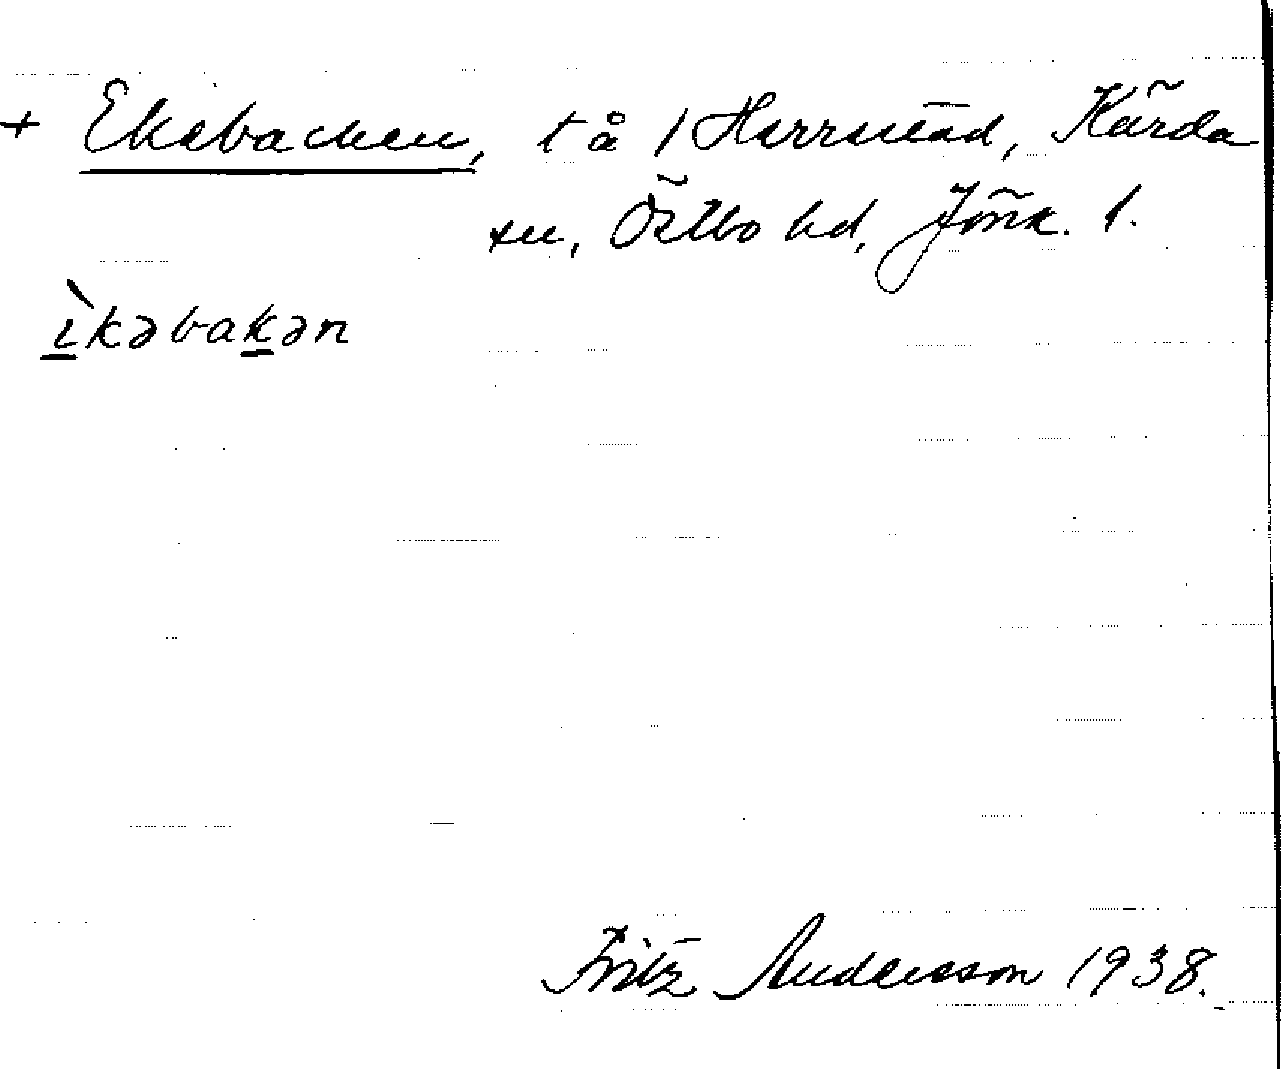 + Ekebacken, t å / Herrestad, Kärda
sn, Östbo hd, Jönk. l.
ìkəbakən
Fritz Andersson 1938.